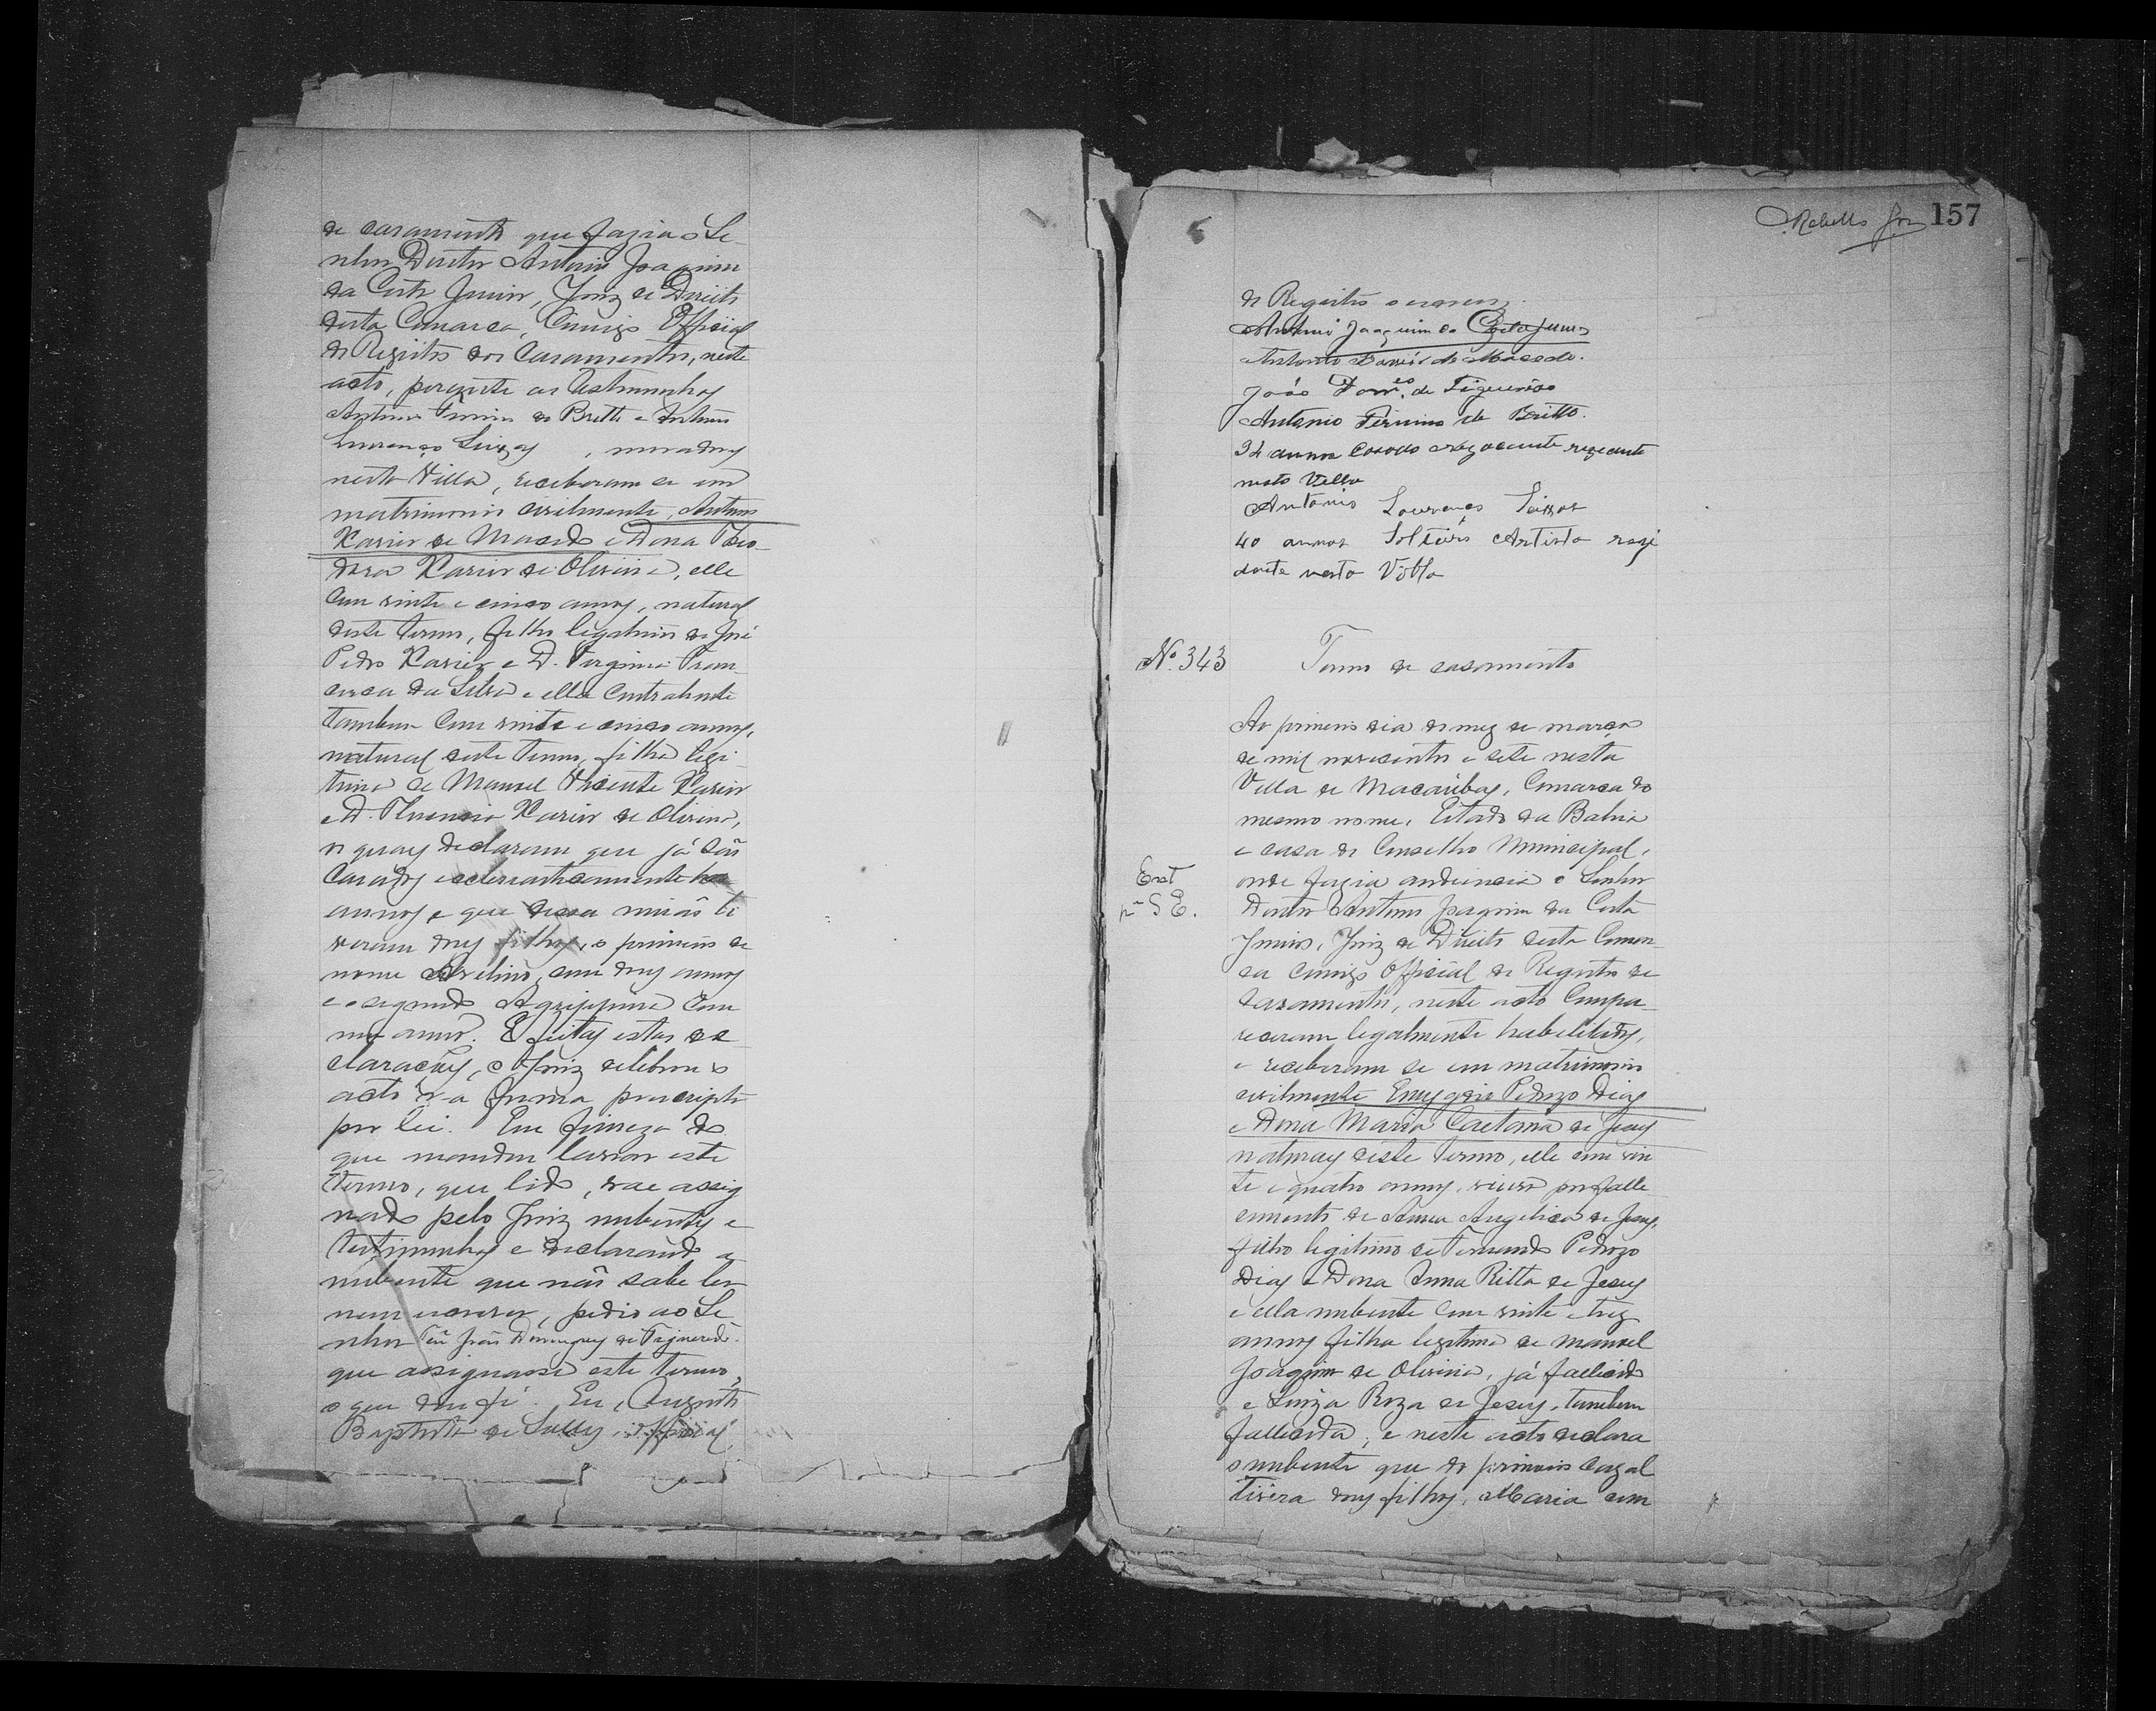 de casamento que fazia o Se-
nhor Doutor Antonio Joaquim
da Costa Junior, Juiz de Direito
desta Comarca, Comigo Official
do Registro dos Casamentos, neste
acto, perante as testemunhas
Antonio Firmino de Britto e Antonio
Lourenço Seixas, moradores
nesta Villa, receberam se em
matrimonio civilmente, Antonio
Xavier de Macedo e Dona Theo-
dora Xavier de Oliveira, elle
com vinte e cinco annos, natural
deste termo, filho legitimo de José
Pedro Xavier e D. Virginia Fran-
cisca da Silva e ella contrahente
tambem com vinte e cinco annos,
natural deste termo, filha legi-
tima de Manoel Vicente Xavier
e D. Florencia Xavier de Oliveira,
os quaes declaram que já são
casados ecclesiasticamente ha
annos, e que dessa união ti
veram dous filhos, o primeiro de
nome Avelino, com dous annos
e o segundo Agrippina com
um anno. E feitas estas de
clarações, o Juiz celebrou o
acto na forma prescripta
por lei. Em firmeza do
que mandou lavrar este
termo, que lido, vae assig
nado pelo Juiz nubentes e
testimunhas e declarando a
nubente que não sabe ler
nem escrever, pedio ao Se
nhor João Domingues de Figueredo
que assignasse este termo,
o que dou fé. Eu, Augusto
Baptista de Salles, official
Rabello 157
do Registro o escrevi.
Antonio Joaquim da Costa Junior
Antonio Xavier de Macedo.
João Dom.es de Figueirêdo
Antonio Firmino de Britto.
32 annos Casado Negociante rezidente
nesta Villa
Antonio Lourenço Seixas
40 annos Solteiro Artista rezi
dente nesta Villa
Nº 343 Termo de casamento
Ao primeiro dia do mez de março
de mil novecentos e sete nesta
Villa de Macaúbas, Comarca do
mesmo nome, Estado da Bahia
e casa do Conselho Municipal,
onde fazia audiencia o Senhor
Doutor Antonio Joaquim da Costa
Junior, Juiz de Direito desta Comar-
ca comigo Official do Registro de
Casamento, neste acto Compa-
receram legalmente habilitados,
e receberam se em matrimonio
civilmente Pedrozo Dias
e Dona Maria Caetana de Jesus
naturaes deste termo, elle com vin
te e quatro annos, viuvo por falle
cimento de Anna Angelica de Jesus,
filho legitimo de Fernando Pedrozo
Dias e Dona Anna Ritta de Jesus
e ella nubente com vinte e trez
annos filha legitima de Manoel
Joaquim de Oliveira, já fallecido
e Luiza Roza de Jesus, tambem
fallecida, e neste acto declara
o nubente que do primeiro cazal
tivera dous filhos, Maria com
Ext
pª S E.